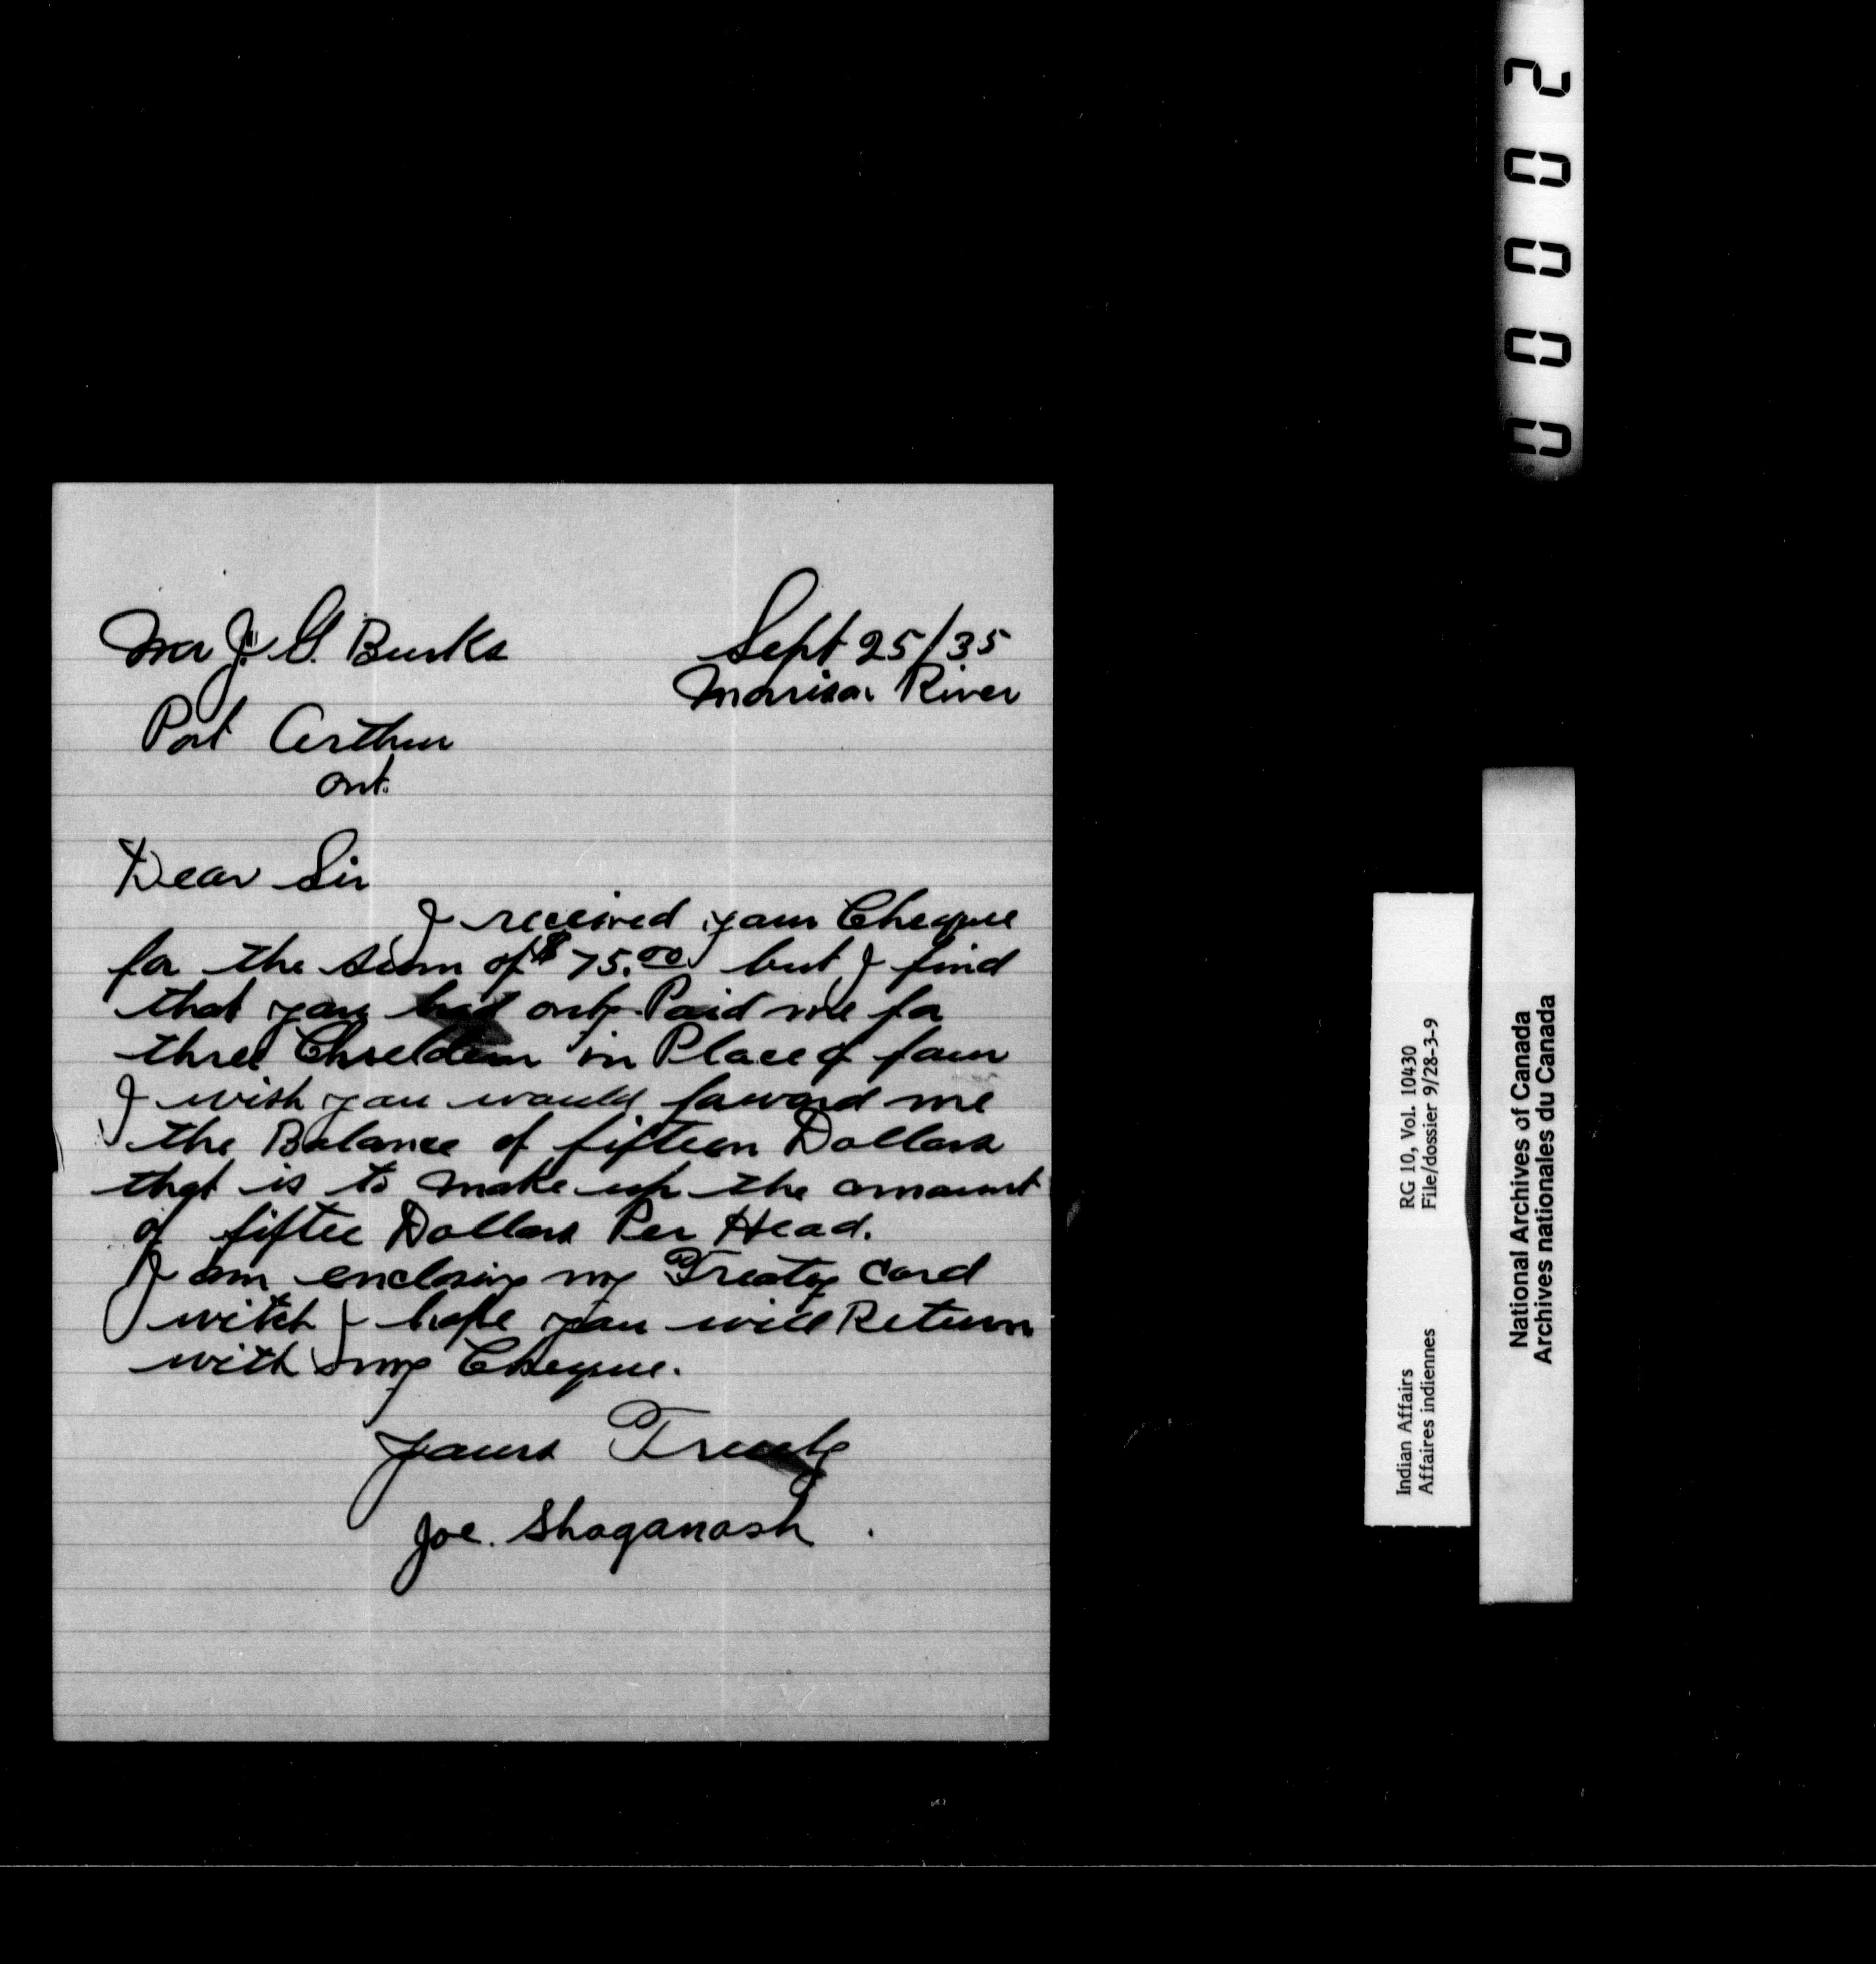 Mr J. G. Burks
Sept 25/35
Morison River
Port Arthur
Ont.
Dear Sir
I received your Cheque
for the sum of $75.00 but I find
that you had only Paid me for
three Chieldern in Place of four
I wish you would forward me
the Balance of fifteen Dollars
that is to make up the amount
of fiftee Dollars Per Head.
I am enclosing my Treaty Card
witch I hope you will Return
with my Cheque.
Yours Truely
Joe. Shaganash.
00002
Indian Affairs RG 10, Vol. 10430
Affaires indiennes File/dossier 9/28-3-9
National Archives of Canada
Archives nationales du Canada